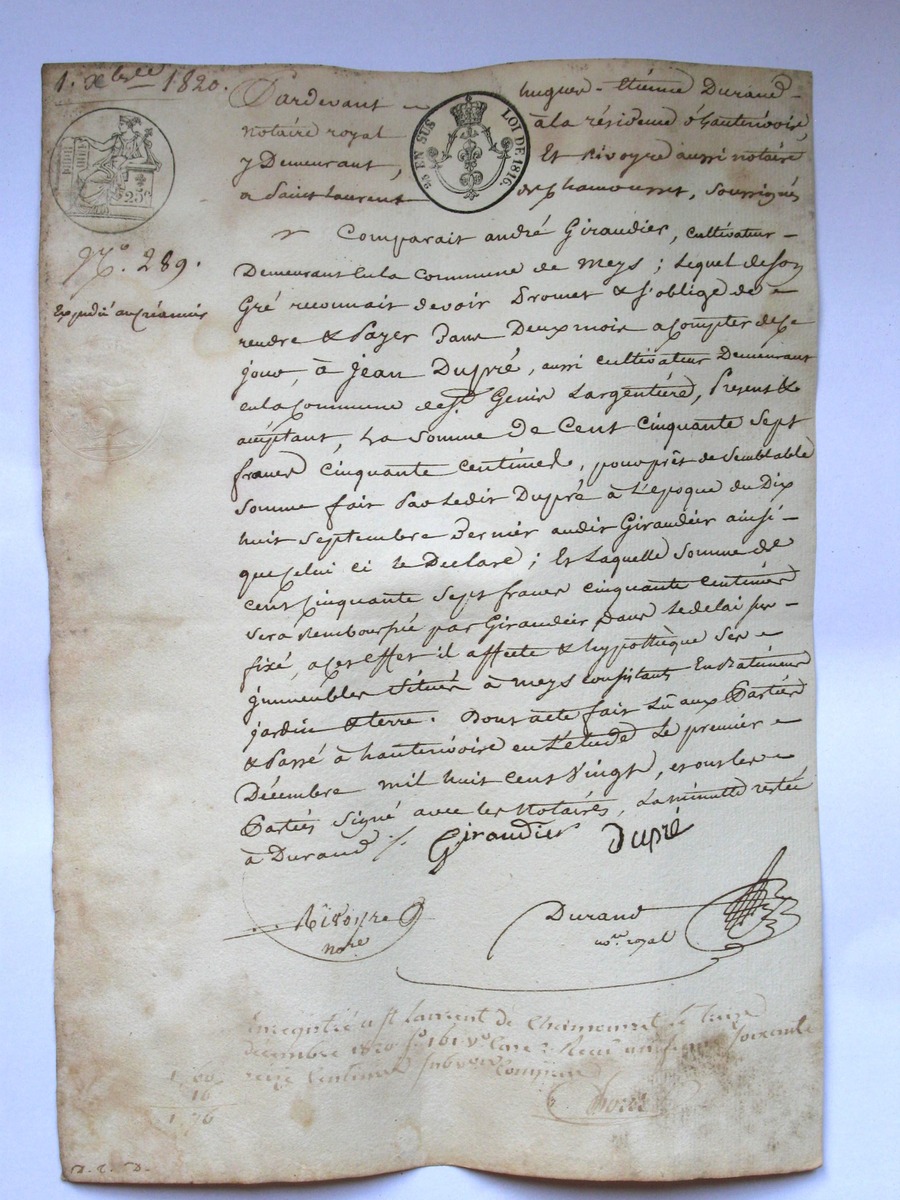 1. Xbre 1820.
Pardevant hugues-Etienne Durand
notaire royal à la résidence d'hauterivoire,
y Demeurant, Et Rivoyre aussi notaire
a Saint Laurent de chamousset, soussignés
EN SUS LOI DE 1816.
25c
No. 289.
Expédié au créancier
Comparait andré Giraudier, cultivateur
Demeurant en la commune de meys; lequel de son
Gré reconnait devoir Promet & s'oblige de
rendre & Payer Dans Deux mois a compter de ce
jour, à jean Dupré, aussi cultivateur Demeurant
en la Commune de St. Genis Largentière, Present &
acceptant, La somme De Cent cinquante sept
francs cinquante centimes, pour prêt de semblable
somme fait Par Ledit Dupré à L'époque du Dix
huit septembre Dernier audit Giraudier ainsi
que celui ci le Declare; Et Laquelle somme de
cent cinquante sept francs cinquante centimes
sera Remboursée par Giraudier Dans le delai pre-
fixé, a cet effet il affecte & hypothèque ses
immeubles situés à meys consistants En batiments
jardin & terre. Dont acte fait Lû aux Parties
& Passé à hauterivoire en L'étude Le premier
Décembre mil huit cent Vingt, et ont les
Parties signé avec les Notaires, La minutte restée
à Durand
Giraudier Dupré
Rivoyre
nore
Durand
nore royal
Enregistré a st Laurent de Chamousset le treize
décembre 1820 fo 161 Vo Case 2 Reçu un franc soixante
seize centimes subvon Comprise
1, 60
16
1 76
D. C. D.